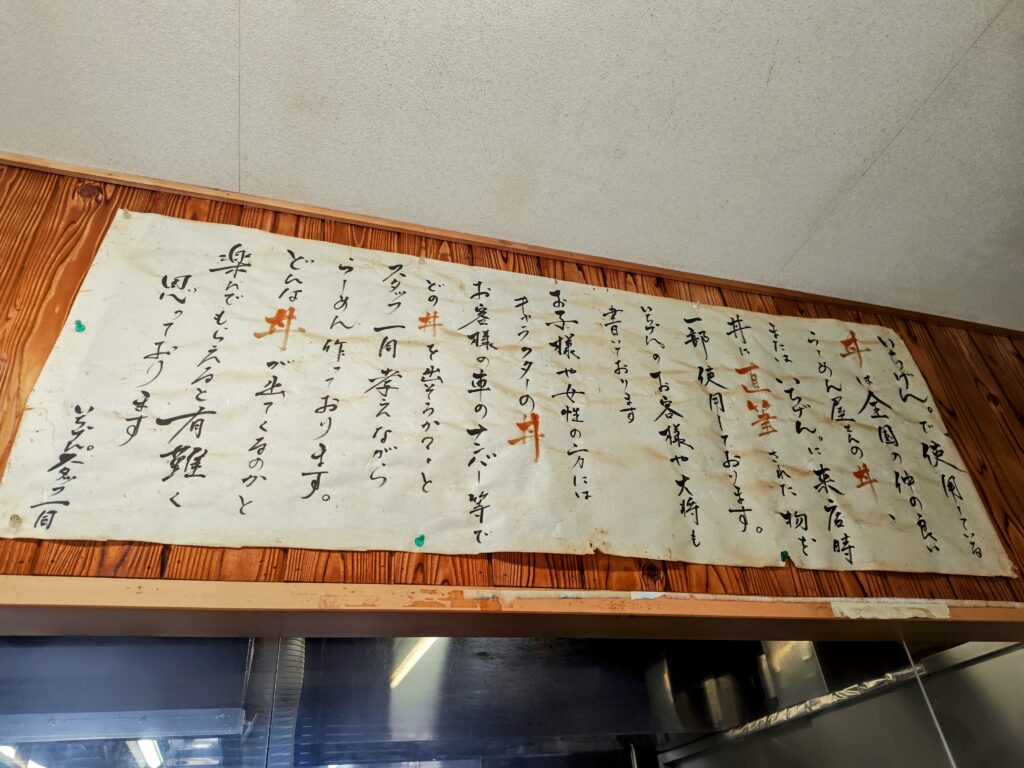 いちげん。で使用している
丼は全国の仲の良い
らーめん屋さんの丼、
またはいちげん。に来店時
丼に直筆された物を
一部使用しております。
いちげん。のお客様や大将も
書いております
お子様や女性の方には
キャラクターの丼
お客様の車のナンバー等で
どの丼を出そうか?と
スタッフ一同考えながら
らーめん作っております。
どんな丼が出てくるのかと
楽んでもらえると有難く
思っております
いちげん。スタッフ一同